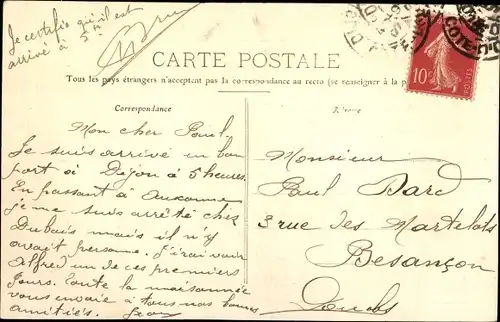 Je certifie qu'il est
arrivé à 5h
CARTE POSTALE
Tous les pays étrangers n'acceptent pas la correspondance au recto (se renseigner à la p
Correspondance
10c
COTE-D'
Mon cher Paul,
Je suis arrivé en bon
port à Dijon à 5 heures.
En passant à Auxonne
je me suis arrêté chez
Dubois mais il n'y
avait personne. J'irai voir
Alfred un de ces premiers
jours. Toute la maisonnée
vous envoie à tous nos bonnes
amitiés. Jean
Monsieur
Paul Dard
3 rue des Martelots
Besançon
Doubs